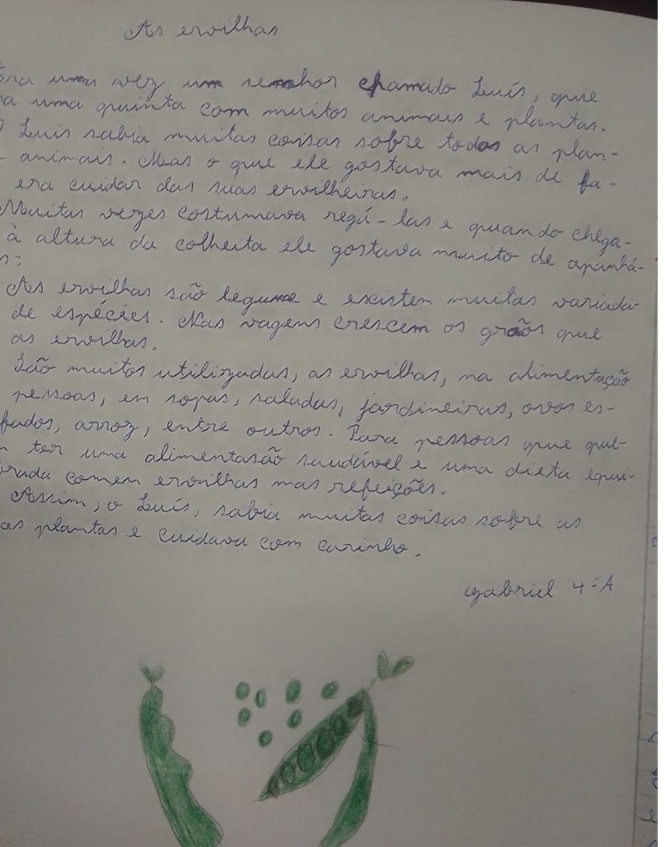 As ervilhas
Era uma vez um senhor chamado Luís, que
a uma quinta com muitos animais e plantas.
O Luís sabia muitas coisas sobre todas as plan-
animais. Mas o que ele gostava mais de fa-
era cuidar das suas ervilheiras.
Muitas vezes costumava regá-las e quando chega-
à altura da colheita ele gostava muito de apanhá-
s:
As ervilhas são legume e existem muitas variada-
de espécies. Nas vagens crescem os grãos que
as ervilhas.
São muitos utilizadas, as ervilhas, na alimentação
pessoas, em sopas, saladas, jardineiras, ovos es-
fados, arroz, entre outros. Para pessoas que que-
m ter uma alimentasão saudável e uma dieta equi-
brada comem ervilhas nas refeições.
Assim, o Luís, sabia muitas coisas sobre as
as plantas e cuidava com carinho.
Gabriel 4ºA